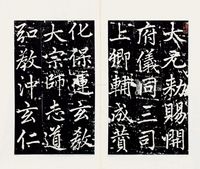 大元勑賜開
府儀同三司
上卿輔成贊
化保運玄教
大宗師志道
弘教沖玄仁